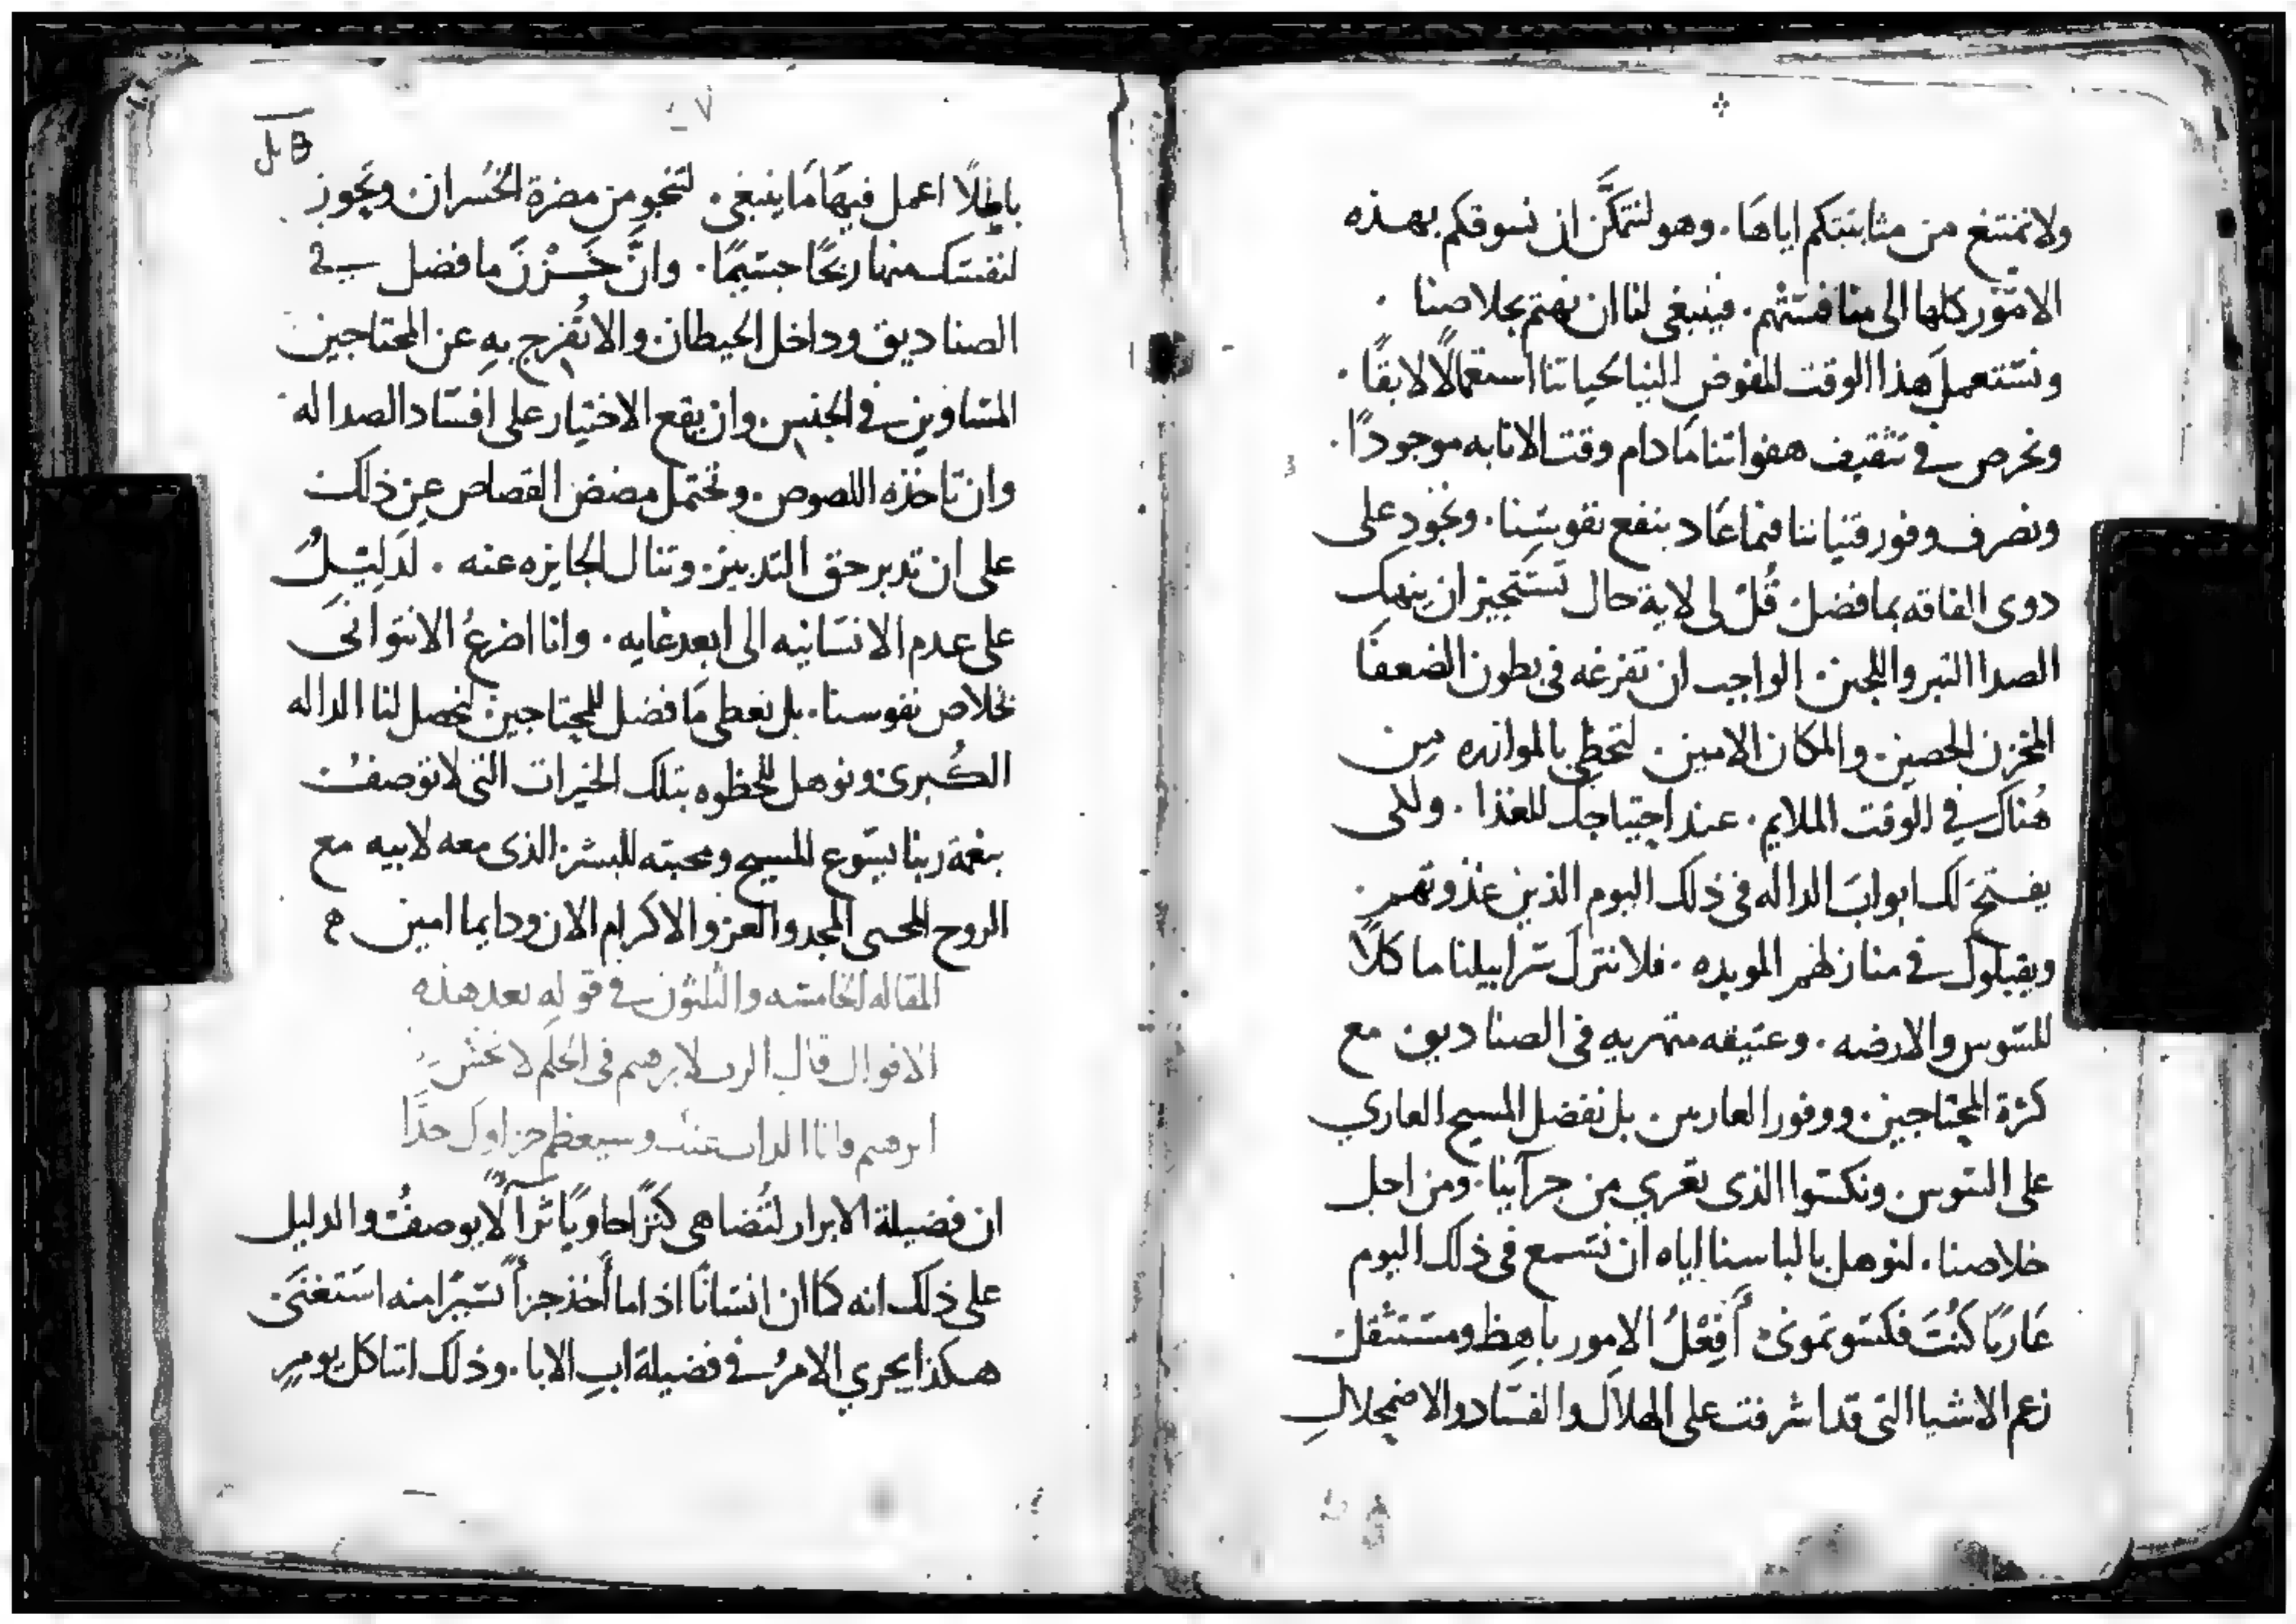 ولا تمتنع من متابنتكم اياها . وهو لتتمكَّن ان نسوقكم بهذه
الامور كلها الى منافستهم . فينبغي لنا ان نهتم بخلاصنا .
ونستعمل هذا الوقت المفوض الينا بحياتنا استعمالًا لايقًا .
ونحرص في تثقيف هفواتنا مادام وقت الانابه موجودًا .
ونصرف وفور قنياتنا فيما عاد بنفع نفوسنا . ونجود على
دوى الفاقه بما فضل قُلْ لى لاية حال تستجيز ان ينهك
الصدا التبر واللجين الواجب ان تفرغه فى بطون الضعفا
المخزن الحصين والمكان الامين . لتحظى بالموازره من
هُناك في الوقت الملايم . عند احتياجك للغذا . وللى
يفتح لك ابواب الداله فى ذلك اليوم الذين غذوتهم .
ويقبلوك في منازلهم الموبده . فلا نترك سرابيلنا ماكلًا
للسوس والارضه . وعتيقه متهريه فى الصناديق مع
كثرة المحتاجين ووفور العارين . بل نفضل المسيح العاري
على السوس . ونكسوا الذى تعري من جرآينا . ومن اجل
خلاصنا . لنوهل بالباسنا اياه ان نسمع فى ذلك اليوم
عاريًا كنتَ فكسوتمونى أَفِعْلُ الامور باهظ ومستثقل
نعم الاشيا التى قد اشرفت على الهلاك والفساد والاضمحلال
باطلًا اعمل فيها ما ينبغى . لتنجو من مضرة الخُسران وتجوز
لنفسك منها ربحًا جسيمًا . وانَّ خَزْنَ ما فضل في
الصناديق وداخل الحيطان والا تُفرج به عن المحتاجين
المساوين في الجنس . وان يقع الاختيار على افساد الصدا له
وان تاخذه اللصوص . وتحتمل مضض القصاص عن ذلك
على ان تدبر حق التدبير . وتنال الجايزه عنه . لدليلُ
على عدم الانسانيه الى ابعد غايه . وانا اضرعُ الا نتوانى
بخلاص نفوسنا . بل نعطى ما فضل للمحتاجين لتحصل لنا الداله
الكُبرى ونوهل للحظوه بتلك الخيرات التى لا توصف
بنعمة ربنا يسوع المسيح ومحبته للبشر الذى معه لابيه مع
الروح المحيى المجد والعز والاكرام الان ودايما امين
المقاله الخامسه والثلثون في قوله بعد هذه
الاقوال قال الرب لابرهيم فى الحلم لا تخش
ابرهيم فانا الداب عنك وسيعظم جزاوك جدًّا
ان فضيلة الابرار لتُضاهى كنزًا حاويًا ثراً لا يوصف والدليل
على ذلك انه كما ان انسانًا اذا ما أخذ جزاً يسيرًا منه استغنى
هكذا يجري الامرُ في فضيلة اب الابا . وذلك اننا كل يوم